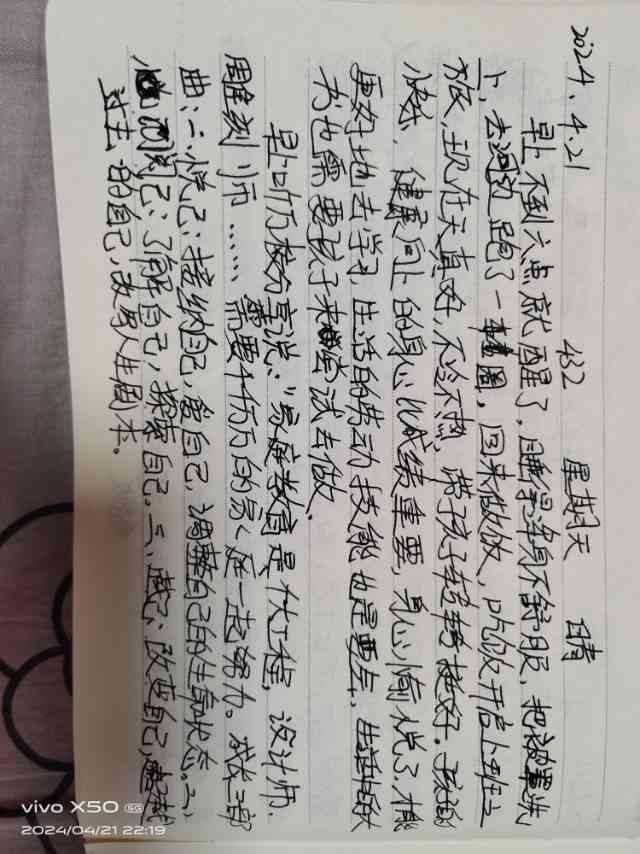 2024.4.21 432 星期天 晴
早上不到六点就醒了,睡得浑身不舒服,把被罩洗
上,去河边跑了一圈,回来做饭,吃饭开启上班之
旅,现在天真好,不冷不热,带孩子转转挺好。孩的
快乐,健康向上的身心比成绩重要,身心愉悦了才能
更好地去学习,生活的劳动技能也是要点,生活
书也需要孩子来尝试去做。
早上叶仍校分享说:“家庭教育是个大工程,设计师.
雕刻师……需要千千万万的家人在一起努力。成长三部
曲:一、悦己:接纳自己,爱自己,调整自己的生命状态。二、
问己:了解自己,探索自己.三、越己:改变自己,越
过去的自己,改写人生剧本。
vivo X50 5G
2024/04/21 22:19